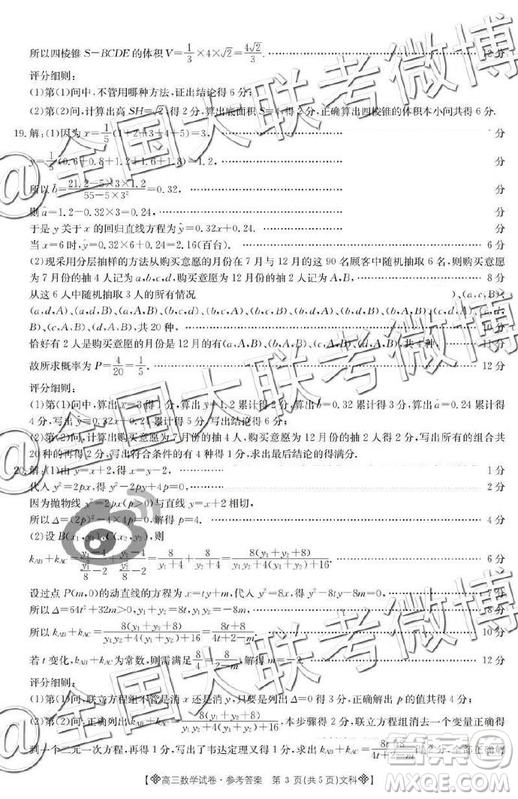 所以四棱锥S-BCDE的体积V=1/3×4×√2=4√2/3. 12分
评分细则:
(1)第(1)问中,不管用哪种方法,证出结论得6分;
(2)第(2)问,计算出高SH=√2得2分,算出底面积 得2分,正确算出四棱锥的体积本小问共得6分.
19.解:(1)因为x=1/5(1+2+3+4+5)=3, 分
y=1/5(0.6+0.8+1.2+1.6+1.8)=1.2, 分
所以b=(21.2-5×3×1.2)/(55-5×3²)=0.32, 分
则a=1.2-0.32×3=0.24.
于是y关于x的回归直线方程为y=0.32x+0.24.
当x=6时,y=0.32×6+0.24=2.16(百台). 6分
(2)现采用分层抽样的方法从购买意愿的月份在7月与12月的这90名顾客中随机抽取6人,则购买意愿
为7月份的抽4人记为a,b,c,d,购买意愿为12月份的抽2人记为A,B, 8分
从这6人中随机抽取3人的所有情况 ),(a,c,B),
(a,d,A),(a,d,B),(a,A,B),(b,c,d),(b,c,A),(b,c,B),(b,d,A),(b,d,B),(b,A,B),(c,d,A),
(c,d,B),(c,A,B),(d,A,B),共20种,
恰好有2人是购买意愿的月份是12月的有(a,A,B),(b,A,B),(c,A,B),(d,A,B),共4种. 11分
故所求概率为P=4/20=1/5. 12分
评分细则:
(1)第(1)问中,算出x=3得1分,算出y=1.2累计得2分,算出b=0.32累计得3分,算出a=0.24累计得
4分,写出 =0.32x+0.24累计得5分,写出结论得6分;
(2)第(2)问中,计算出购买意愿7月份的抽4人,购买意愿12月份的抽2人得2分,写出所有的组合共
20种再得2分,写出符合条件的有4种得1分,求出最后结论的得满分.
20.解:(1)由y=x+2,得x=y-2, 1分
代入y²=2px得y²-2py+4p=0. 2分
因为抛物线y²=2px(p>0)与直线y=x+2相切,
所以Δ=(2p)²-4×4p=0,解得p=4. 4分
(2)设B(x₁,y₁),C(x₂,y₂),则
k_AB+k_AC= =8/(y₁+4)+8/(y₂+4)=8(y₁+y₂+8)/(y₁y₂+4(y₁+y₂)+16). 6分
设过点P(m,0)的动直线的方程为x=ty+m,代入y²=8x,得y²-8ty-8m=0,
所以Δ=64t²+32m>0,y₁+y₂=8t,y₁y₂=-8m, 8分
所以k_AB+k_AC=8(y₁+y₂+8)/(y₁y₂+4(y₁+y₂)+16)=(8t+8)/(4t+2-m). 10分
若t变化,k_AB+k_AC为常数,则需满足8/4=8/(2-m) 12分
评分细则:
(1)第(1)问,联立方程组不管是消x还是消y,只要是列出Δ=0得3分,正确解出p的值共得4分;
(2)第(2)问,正确写出k_AB+k_AC=8(y₁+y₂+8)/(y₁y₂+4(y₁+y₂)+16),本步骤得2分,联立方程组,代入消元得
到一个一元二次方程,本步得1分,写出了韦达定理又得1分,求出k_AB+k_AC=
高三数学试卷·参考答案 第3页(共5页)文科
@全国大联考微博
答案圈